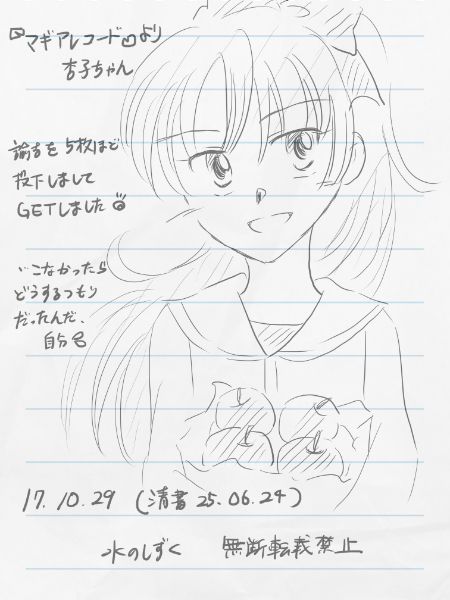 『マギアレコード』より
杏子ちゃん
諭吉を5枚ほど
投下しまして
GETしました
…こなかったら
どうするつもり
だったんだ、
自分
17.10.29 (清書 25.06.24)
水のしずく 無断転載禁止